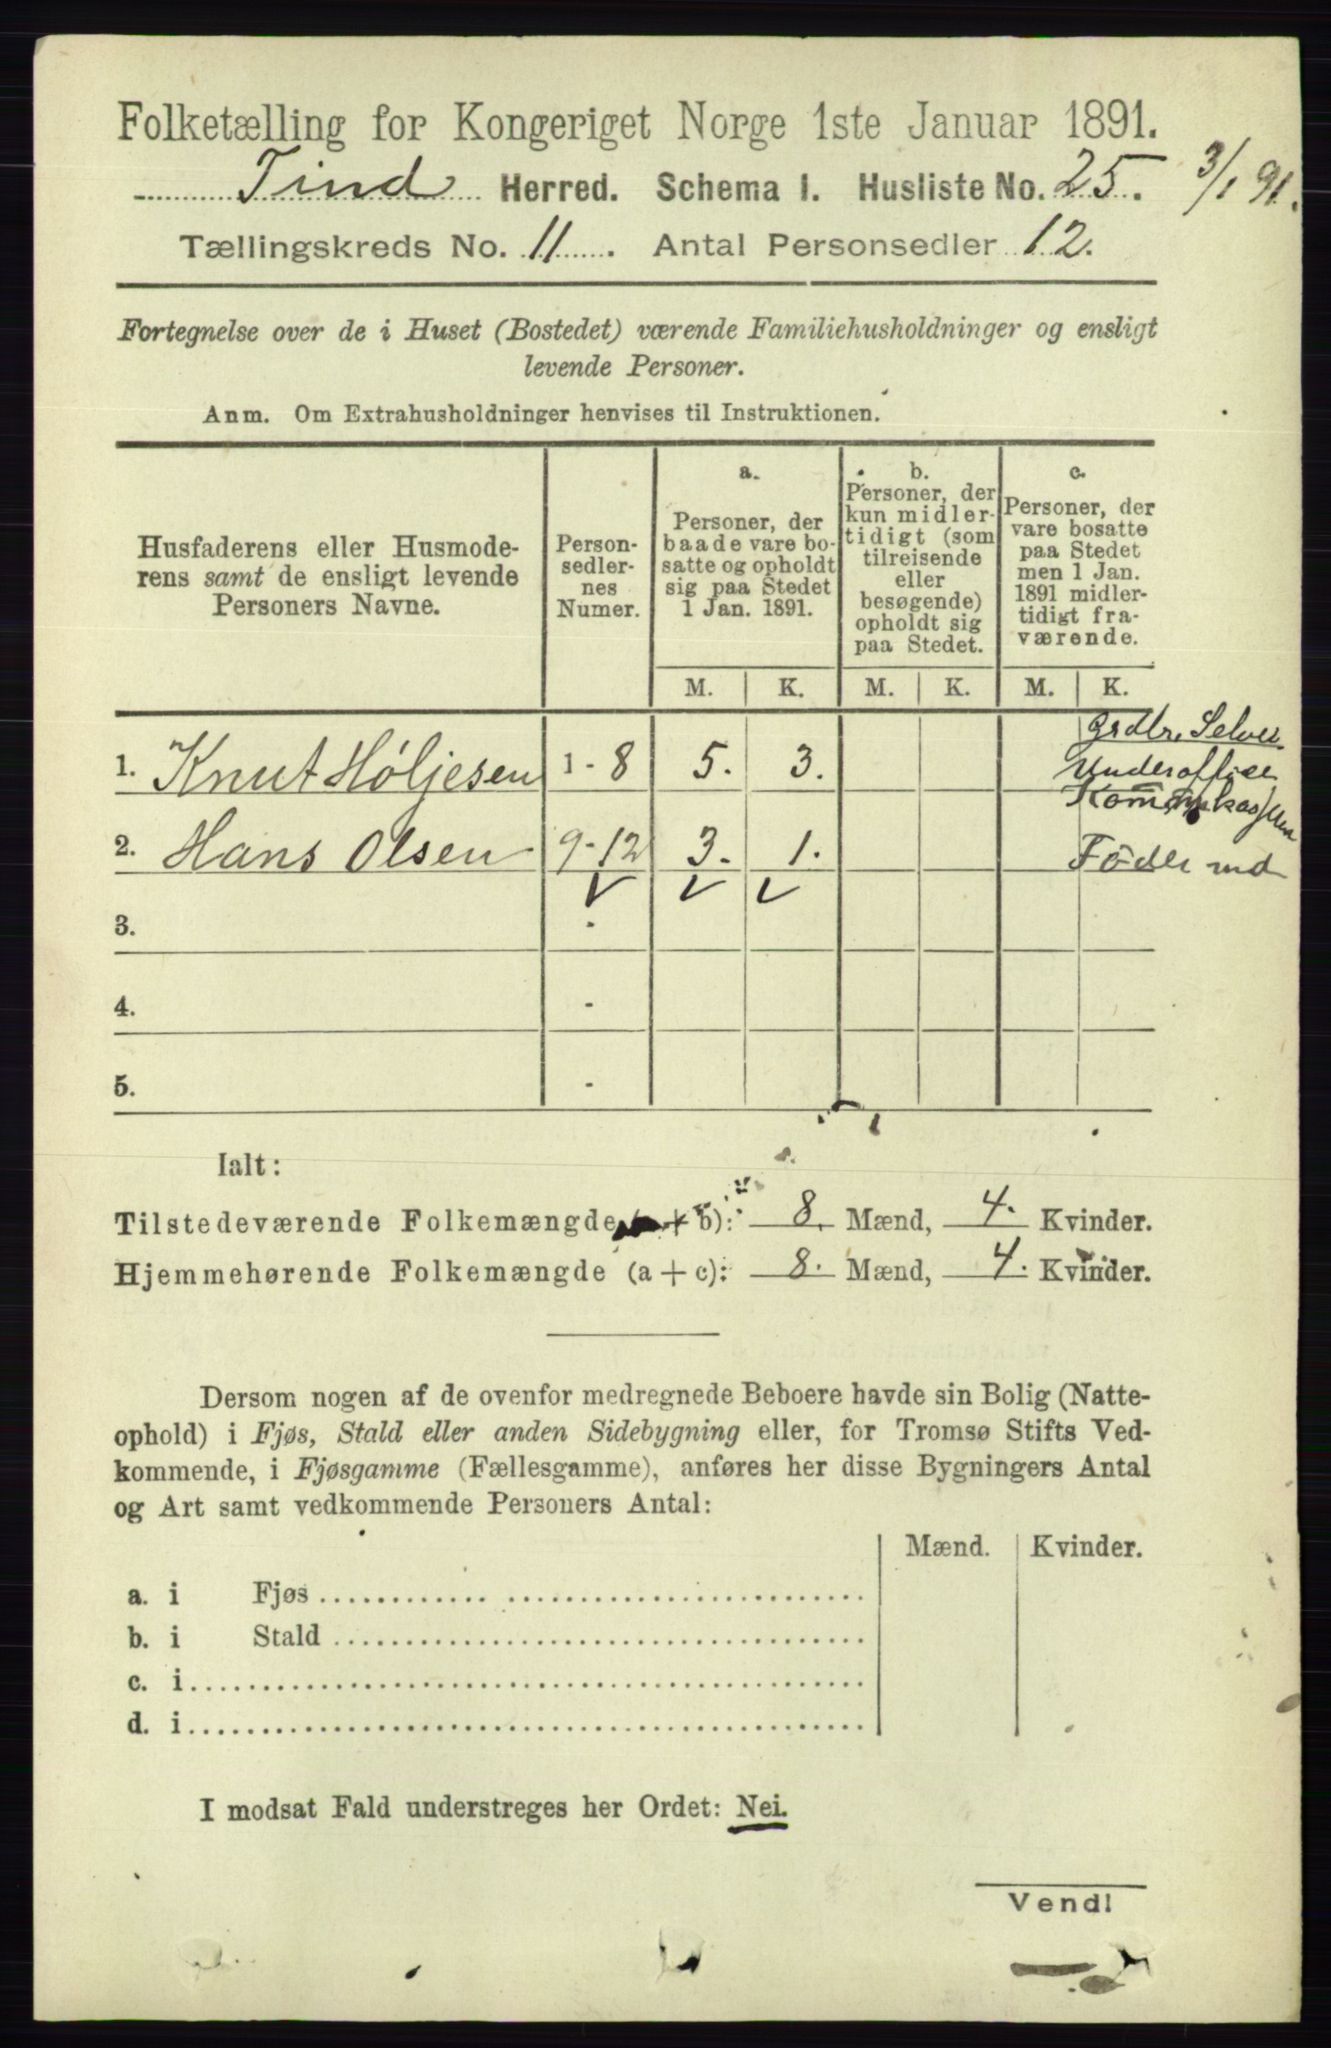 Folketælling for Kongeriget Norge 1ste Januar 1891.
Tind Herred. Schema I. Husliste No. 25. 3/1 91.
Tællingskreds No. 11. Antal Personsedler 12.
Fortegnelse over de i Huset (Bostedet) værende Familiehusholdninger og ensligt
levende Personer.
Anm. Om Extrahusholdninger henvises til Instruktionen.
Husfaderens eller Husmode-
rens samt de ensligt levende
Personers Navne.
Person-
sedler-
nes
Numer.
a.
Personer, der
baade vare bo-
satte og opholdt
sig paa Stedet
1 Jan. 1891.
b.
Personer, der
kun midler-
tidigt (som
tilreisende
eller
besøgende)
opholdt sig
paa Stedet.
c.
Personer, der
vare bosatte
paa Stedet
men 1 Jan.
1891 midler-
tidigt fra-
værende.
M. K. M. K. M. K.
1. Knut Høljesen 1-8 5. 3.
Grdbr. Selvei.
Underoffice
2. Hans Olsen 9-12 3. 1.
Föder md
3. -
4. -
5. -
Ialt:
Tilstedeværende Folkemængde (a+b): 8. Mænd, 4. Kvinder.
Hjemmehørende Folkemængde (a+c): 8. Mænd, 4. Kvinder.
Dersom nogen af de ovenfor medregnede Beboere havde sin Bolig (Natte-
ophold) i Fjøs, Stald eller anden Sidebygning eller, for Tromsø Stifts Ved-
kommende, i Fjøsgamme (Fællesgamme), anføres her disse Bygningers Antal
og Art samt vedkommende Personers Antal:
Mænd. Kvinder.
a. i Fjøs
b. i Stald
c. i
d. i
I modsat Fald understreges her Ordet: Nei.
Vend!